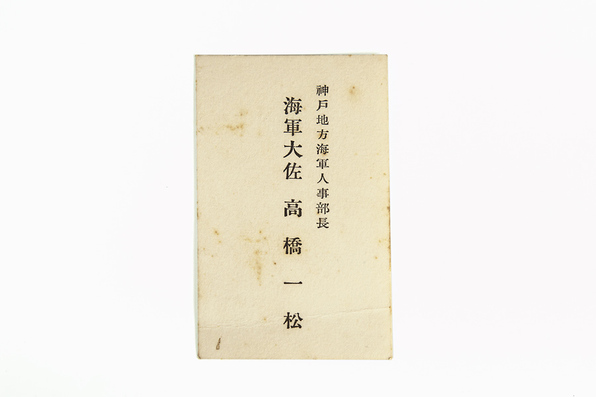 神戶地方海軍人事部長
海軍大佐 高橋一松